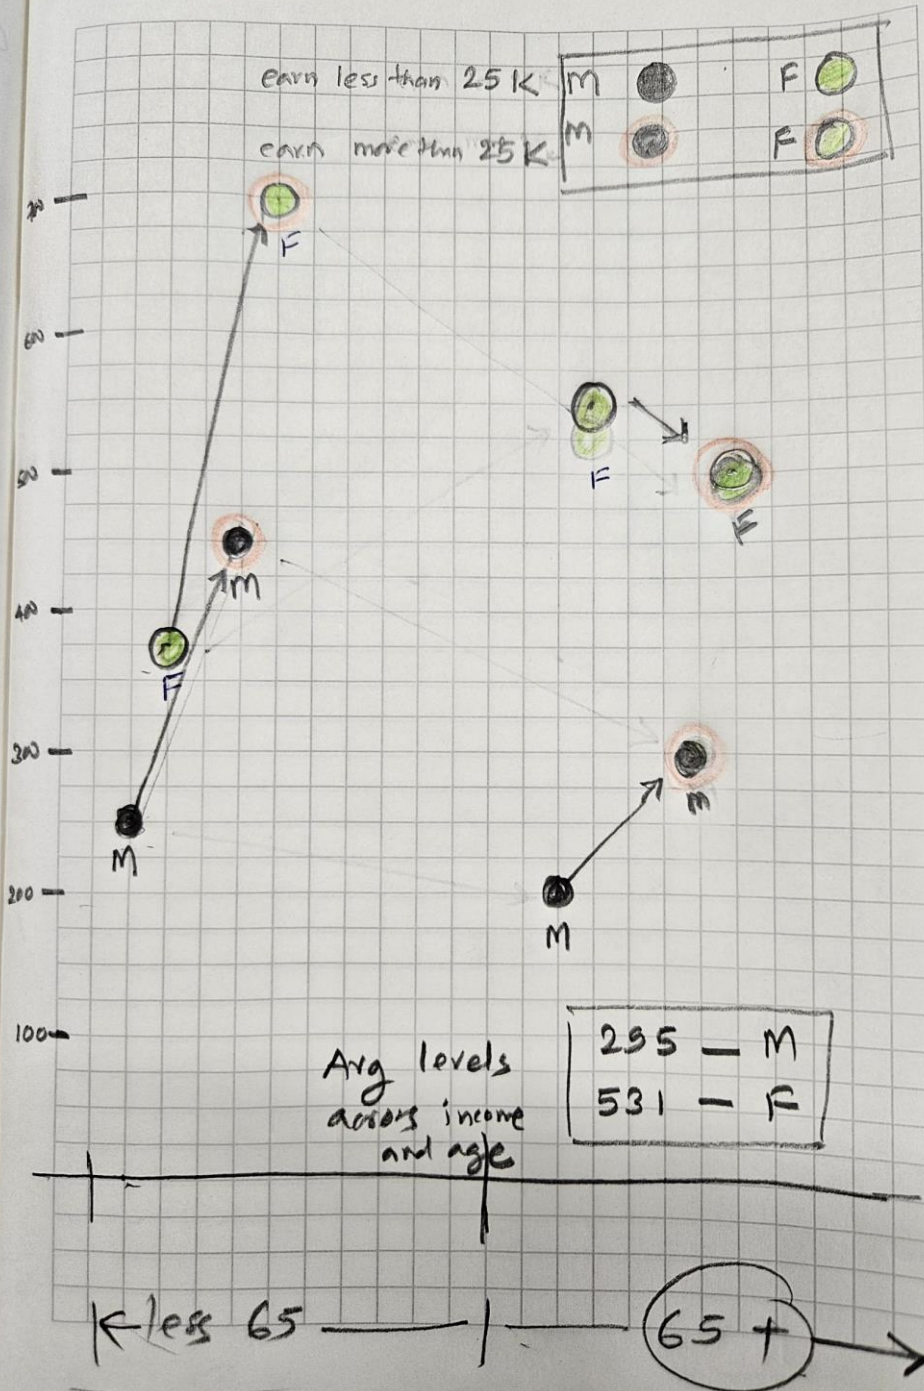 earn less than 25K M F
earn more than 25K M F
700
F
600
F
500
F
M
400
F
300
M
M
200
M
100
Avg levels
across income
and age
295 — M
531 — F
less 65
65 +